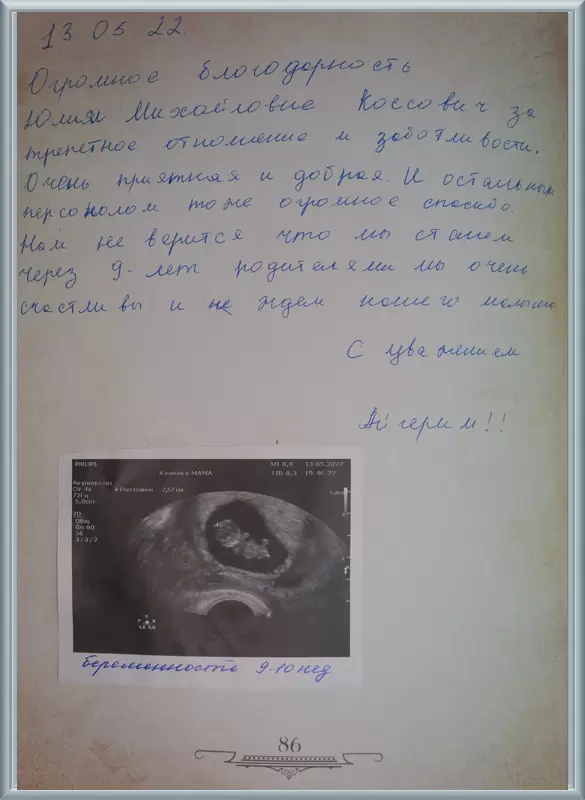 13 05 22.
Огромное благодарность
Юлия Михайловне Коссович за
трепетное отношение и заботливости.
Очень приятная и добрая. И остальном
персоналом тоже огромное спасибо.
Нам не верится что мы станем
через 9-лет родителями мы очень
счастливы и не ждем нашего малыша
С уважением
Айгерим!!
PHILIPS
MI 0,9 13.05.2022
Клиника МАМА
TIB 0,3 19:46:22
Акушерство
C9-4v
72Гц
+Расстояние 2,57 см
2D
Общ
Gn 60
56
3/3/2
беременность 9-10 нед
86